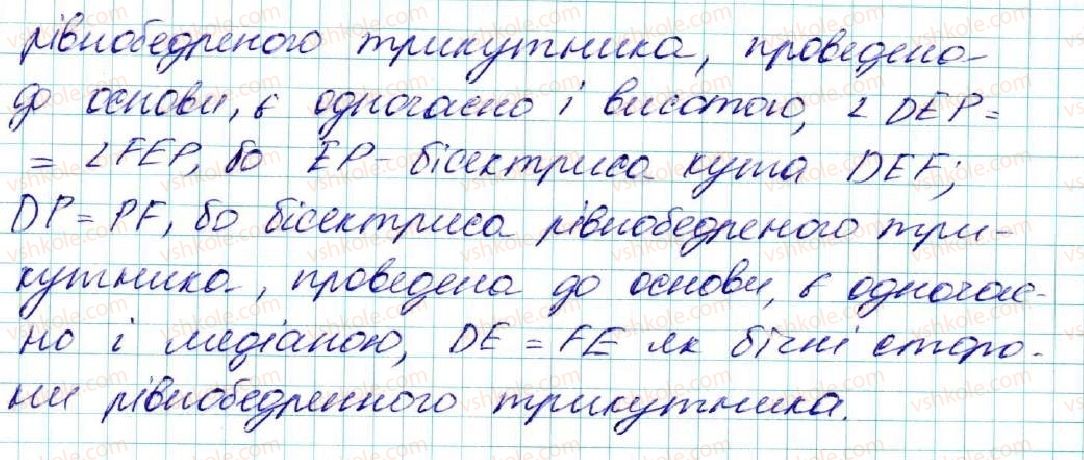 рівнобедреного трикутника, проведено-
до основи, є одночасно і висотою, ∠DEP=
= ∠FEP, бо EP - бісектриса кута DEF;
DP = PF, бо бісектриса рівнобедреного три-
кутника, проведена до основи, є одночас-
но і медіаною, DE = FE як бічні сторо-
ни рівнобедренного трикутника.